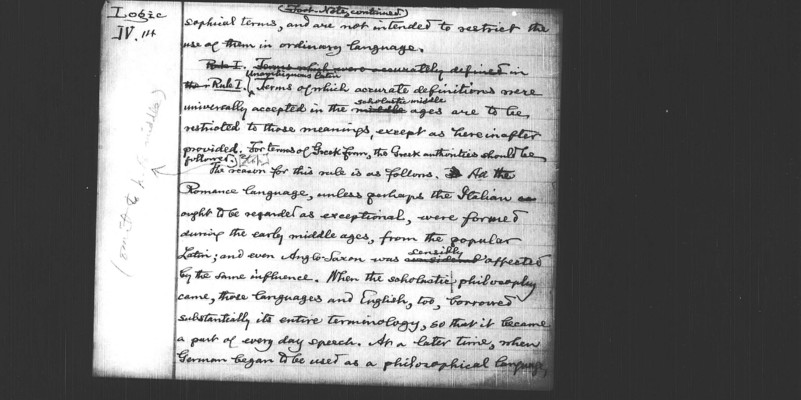 Logic
IV. 114
(Foot-Note, continued)
sophical terms, and are not intended to restrict the
use of them in ordinary language.
Rule I. Terms which were accurately defined in
the Rule I. Unambiguous Latin Terms of which accurate definitions were
universally accepted in the middle scholastic middle ages are to be
restricted to those meanings, except as hereinafter
provided. For terms of Greek form, the Greek authorities should be
followed.
The reason for this rule is as follows. All the
Romance language, unless perhaps the Italian
ought to be regarded as exceptional, were formed
during the early middle ages, from the popular
Latin; and even Anglo-Saxon was considerably sensibly affected
by the same influence. When the scholastic philosophy
came, those languages and English, too, borrowed
substantially its entire terminology, so that it became
a part of every day speech. At a later time, when
German began to be used as a philosophical language,